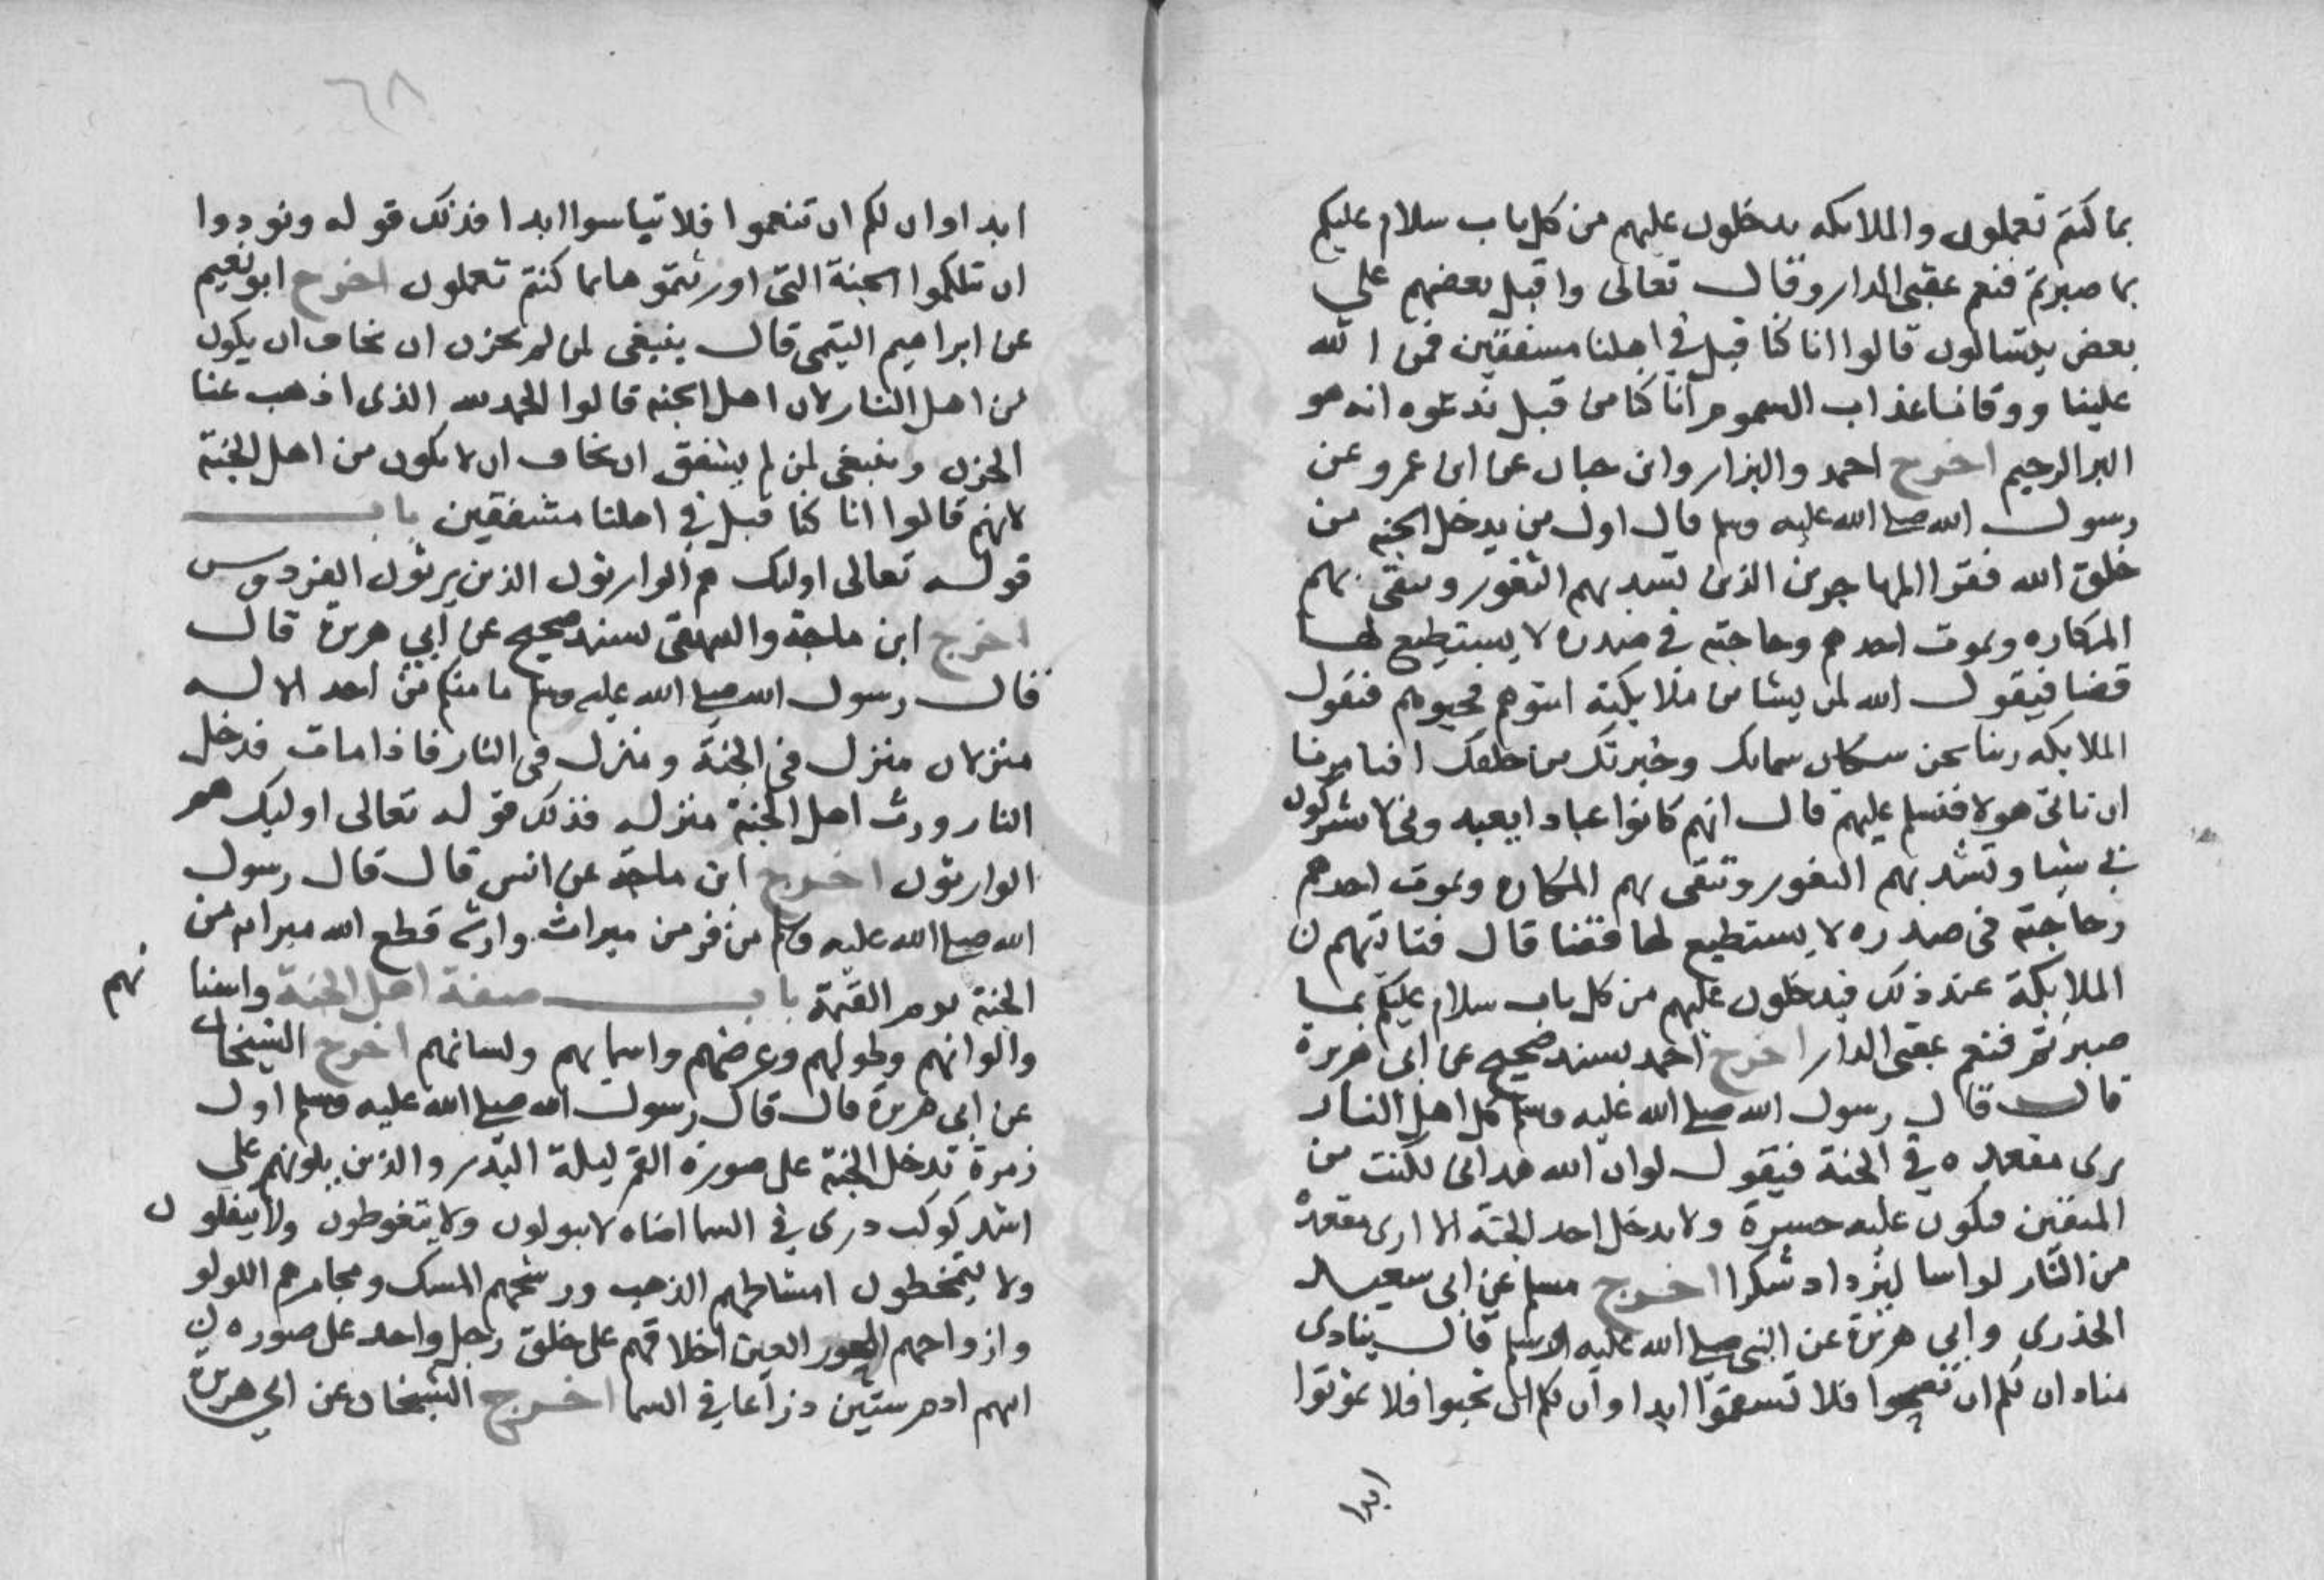 بما كنتم تعملون والملايكه يدخلون عليهم من كل باب سلام عليكم
بما صبرتم فنعم عقبى الدار وقال تعالى واقبل بعضهم على
بعض يتسالون قالوا انا كنا قبل في اهلنا مشفقين فمن الله
علينا ووقانا عذاب السموم انا كنا من قبل ندعوه انه هو
البر الرحيم اخرج احمد والبزار وابن حبان عن ابن عمرو عن
رسول الله صلى الله عليه وسلم قال اول من يدخل الجنه من
خلق الله فقرا المهاجرين الذين تسد بهم الثغور وتتقى بهم
المكاره ويموت احدهم وحاجته في صدره لا يستطيع لها
قضا فيقول الله لمن يشا من ملايكته ايتوهم فحيوهم فتقول
الملايكه ربنا نحن سكان سمايك وخيرتك من خلقك افتامرنا
ان ناتى هولا فنسلم عليهم قال انهم كانوا عبادا يعبدوني لا يشركون
بي شيا وتسد بهم الثغور وتتقى بهم المكاره ويموت احدهم
وحاجته فى صدره لا يستطيع لها قضا قال فتاتيهم
الملايكة عند ذلك فيدخلون عليهم من كل باب سلام عليكم بما
صبرتم فنعم عقبى الدار اخرج احمد بسند صحيح عن ابى هريرة
قال قال رسول الله صلى الله عليه وسلم كل اهل النار
يرى مقعده في الجنة فيقول لو ان الله هدانى لكنت من
المتقين فيكون عليه حسرة ولا يدخل احد الجنة الا ارى مقعده
من النار لو اسا ليزداد شكرا اخرج مسلم عن ابى سعيد
الخدرى وابى هريرة عن النبى صلى الله عليه وسلم قال ينادى
مناد ان لكم ان تصحوا فلا تسقموا ابدا وان لكم ان تحيوا فلا تموتوا
ابدا
٦٨
ابدا وان لكم ان تنعموا فلا تياسوا ابدا فذلك قوله ونودوا
ان تلكموا الجنة التى اورثتموها بما كنتم تعملون اخرج ابو نعيم
عن ابراهيم التيمى قال ينبغى لمن لم يحزن ان يخاف ان يكون
من اهل النار لان اهل الجنه قالوا الحمد لله الذى اذهب عنا
الحزن وينبغى لمن لم يشفق ان يخاف ان لا يكون من اهل الجنة
لانهم قالوا انا كنا قبل في اهلنا مشفقين باب
قوله تعالى اوليك هم الوارثون الذين يرثون الفردوس
اخرج ابن ماجة والبيهقى بسند صحيح عن ابي هريرة قال
قال رسول الله صلى الله عليه وسلم ما منكم من احد الا له
منزلان منزل فى الجنة ومنزل فى النار فاذا مات فدخل
النار ورث اهل الجنة منزله فذلك قوله تعالى اوليك هم
الوارثون اخرج ابن ماجة عن انس قال قال رسول
الله صلى الله عليه وسلم من فر من ميراث وارثه قطع الله ميراثه من
الجنة يوم القيمة باب صفة اهل الجنة واسنا نهم
والوانهم وطولهم وعرضهم واسمايهم ولسانهم اخرج الشيخان
عن ابى هريرة قال قال رسول الله صلى الله عليه وسلم اول
زمرة تدخل الجنة على صورة القمر ليلة البدر والذين يلونهم على
اشد كوكب درى في السما اضاه لا يبولون ولا يتغوطون ولا يتفلون
ولا يتمخطون امشاطهم الذهب ورشحهم المسك ومجامرهم اللولو
وازواجهم الحور العين اخلاقهم على خلق رجل واحد على صوره
ابيهم ادم ستين ذراعا في السما اخرج الشيخان عن ابي هريرة